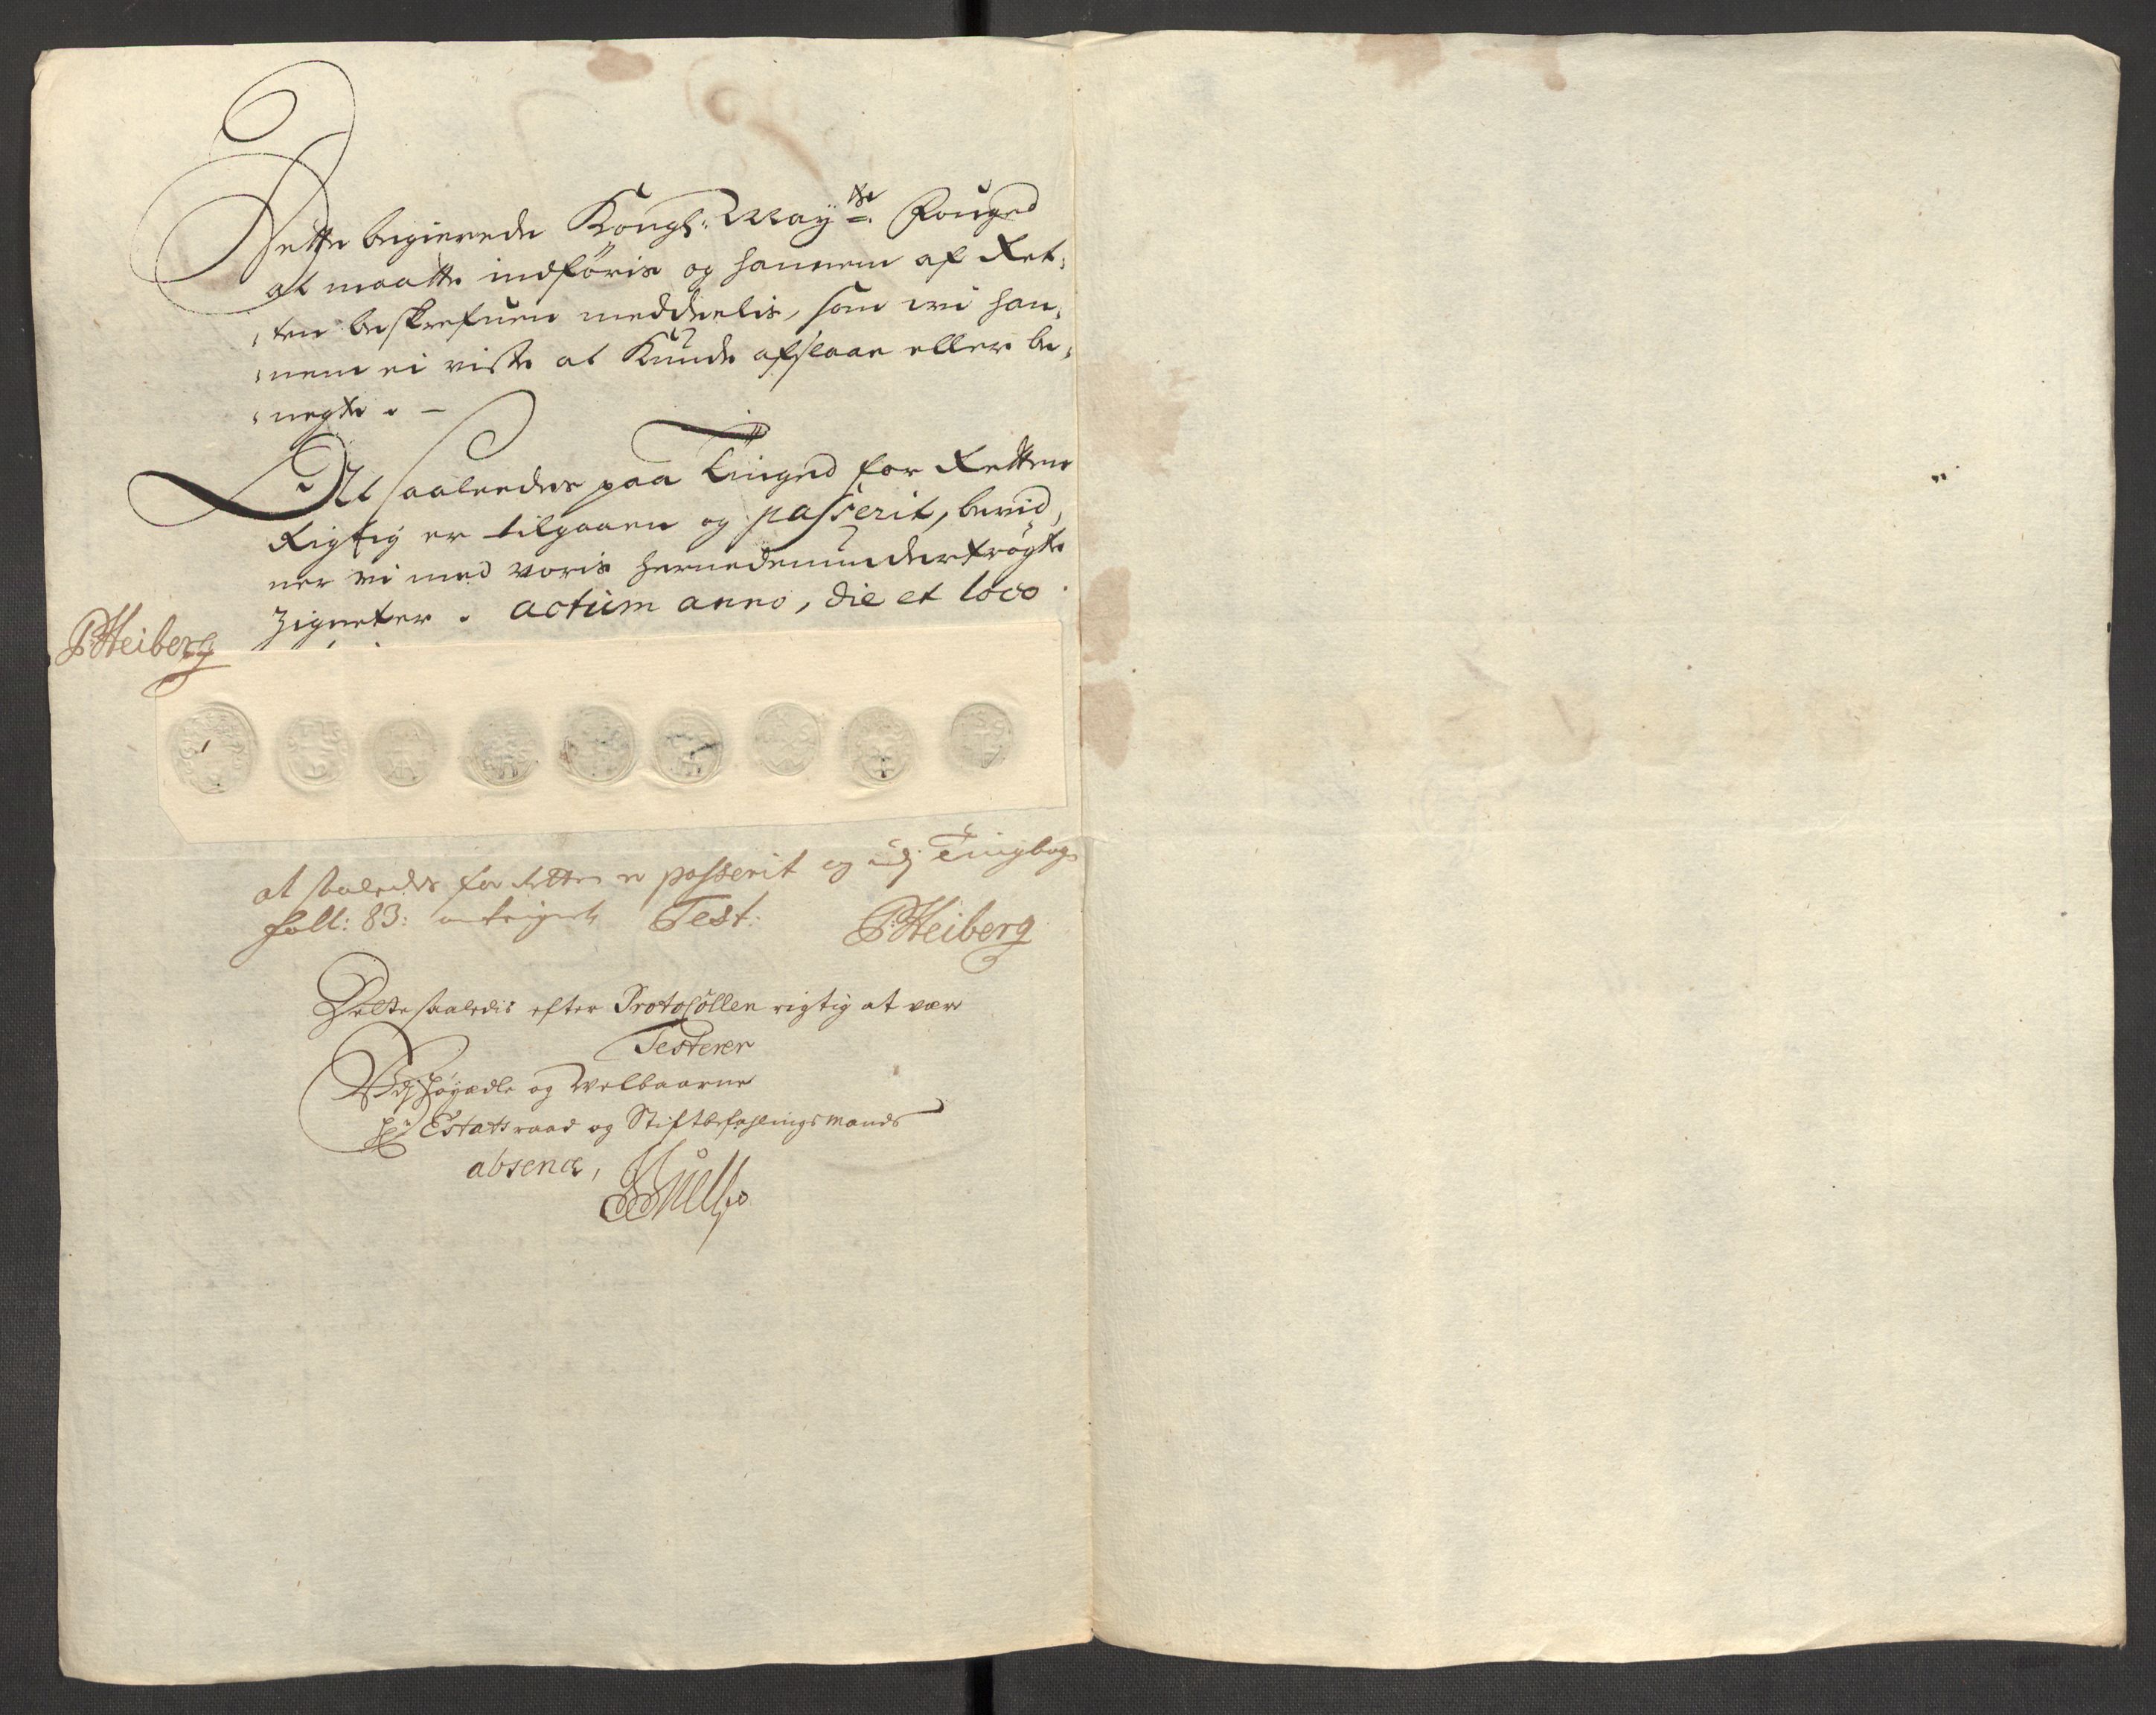 Dette begierede Kongl: May:ts Fouged
at maatte indføris og hannem af Ret,
,ten beskrefuen meddeelis, som wi han,
,nem ei viste at Kunde afslaae eller be,
,negte . —
At saaleedes paa Tinged for Retten
Rigtig er tilgaaen og passerit, bevid,
ner wi med voris hernedenundertrøgte
Zigneter . actum anno, die et loco .
P:Heiberg
at saaledes for Retten er passerit og udj Tingbog
foll: 83: Test: P:Heiberg
Dette saaledis efter Protocollen rigtig at være
Testerer
Udj Høyædle og Welbaarne
Hr Estatsraad og Stiftbefahlingsmands
absence,